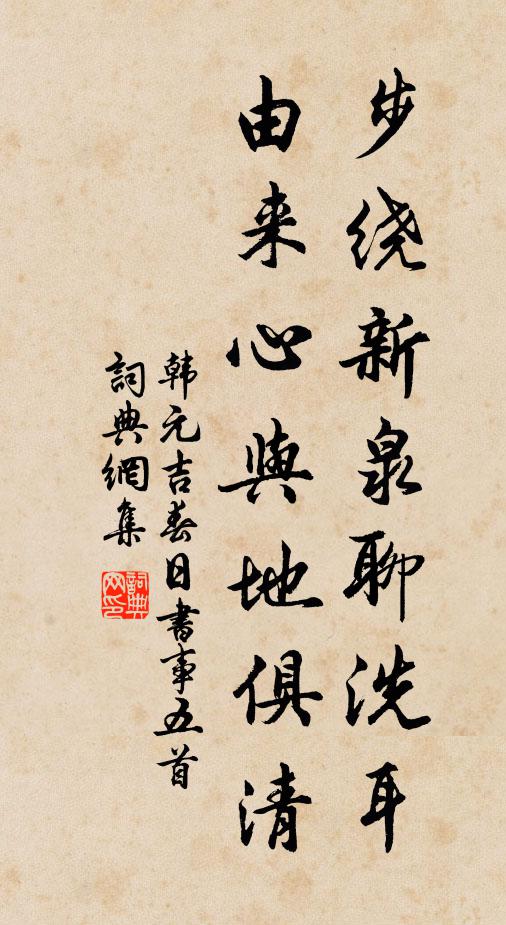 步绕新泉聊洗耳
由来心與地俱清
韩元吉春日書事五首
詞典網集
詞典网印